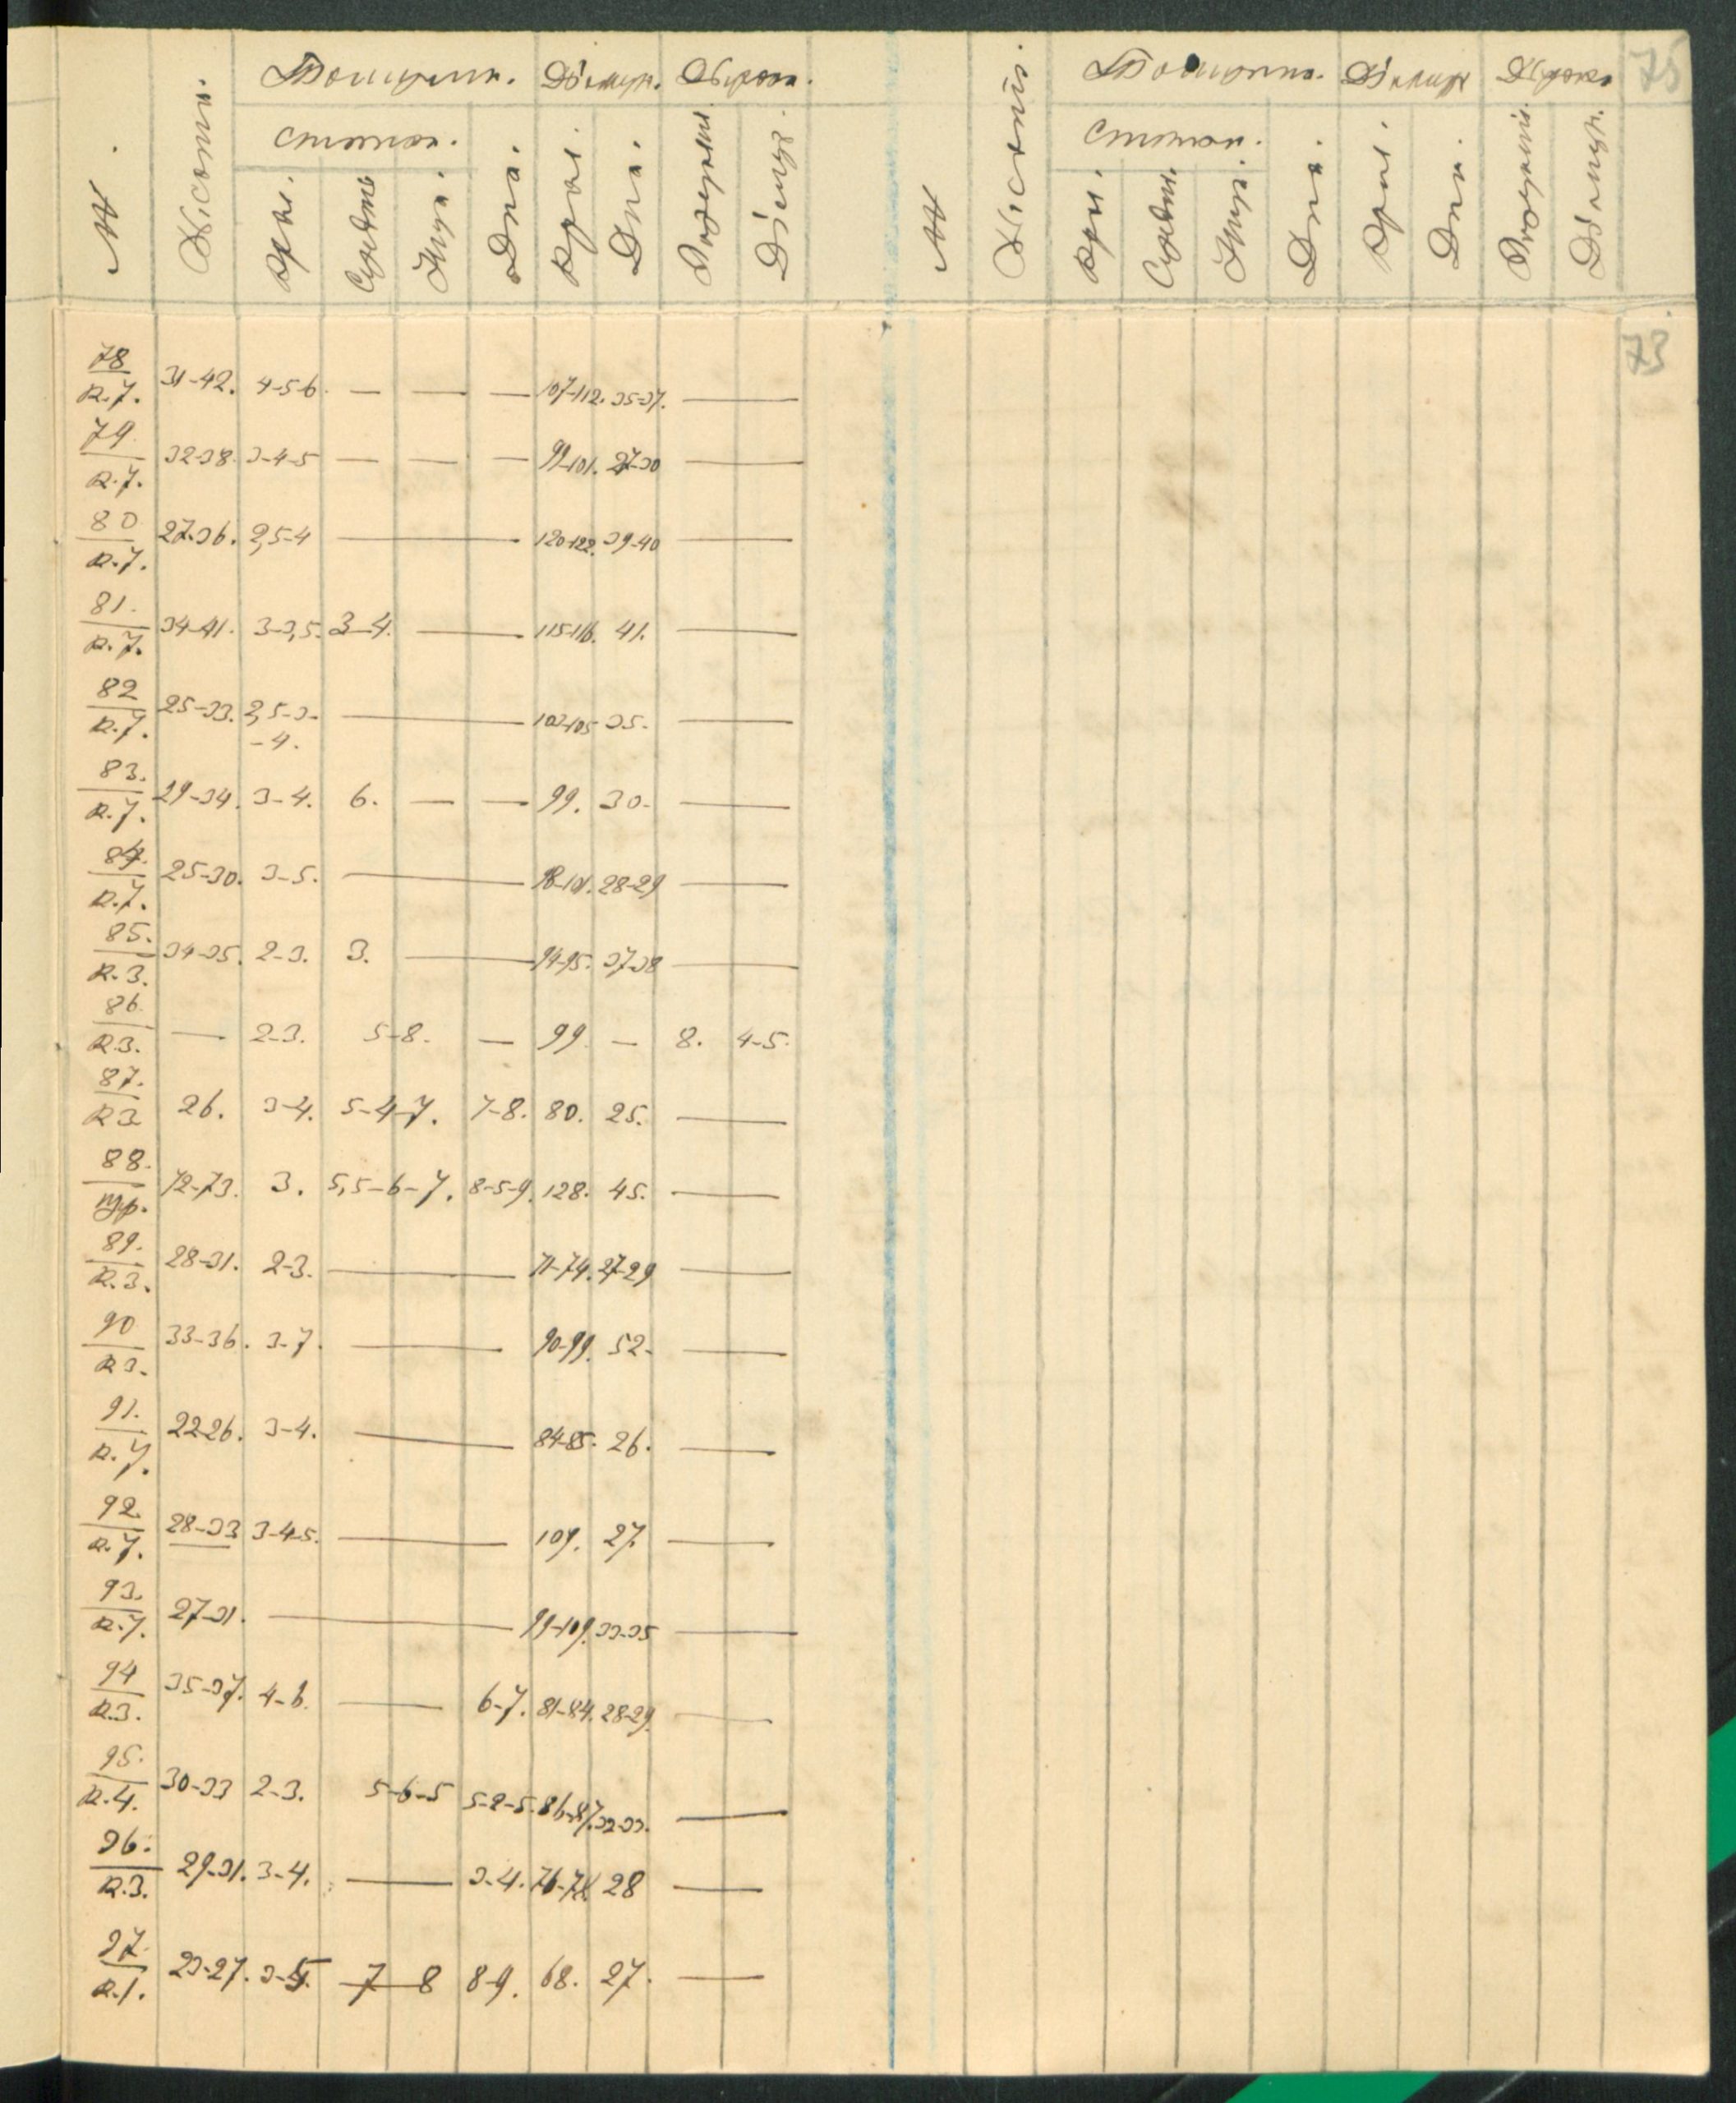 75
Товщина. Дъямтр. Товщина. Дъямтр
стінок. стінок.
№ Висота. Дна. Дна. № Висота. Дна. Дна.
73
78/к.7. 31-42. 4-5-6. — — — 107-112. 35-37. —
79./к.7. 32-38. 3-4-5 — — — 99-101. 27-30 —
80/к.7. 27-36. 2,5-4 — 120-122. 39-40 —
81./к.7. 34-41. 3-3,5. 3-4. — 115-116. 41. —
82/к.7. 25-33. 2,5-3- — 102-105 35. —
-4.
83./к.7. 29-34. 3-4. 6. — — 99. 30. —
84./к.7. 25-30. 3-5. — 98-101. 28-29 —
85./к.3. 34-35. 2-3. 3. — 94-95. 37-38 —
86./к.3. — 2-3. 5-8. — 99. — 8. 4-5.
87./к3 26. 3-4. 5-4-7. 7-8. 80. 25. —
88. 72-73. 3. 5,5-6-7. 8-5-9. 128. 45. —
89./к.3. 28-31. 2-3. — 71-74. 27-29 —
90/к3. 33-36. 3-7. — 90-99. 52. —
91./к.7. 22-26. 3-4. — 84-85. 26. —
92./к.7. 28-33 3-4-5. — 109. 27. —
93./к.7. 27-31. — 99-109. 33-35 —
94/к.3. 35-37. 4-6. — 6-7. 81-84. 28-29. —
95./к.4. 30-33 2-3. 5-6-5 5-2-5. 86-87. 32-33. —
96./к.3. 29-31. 3-4. — 3-4. 28 —
97./к.1. 23-27. 7 8 8-9. 68. 27. —